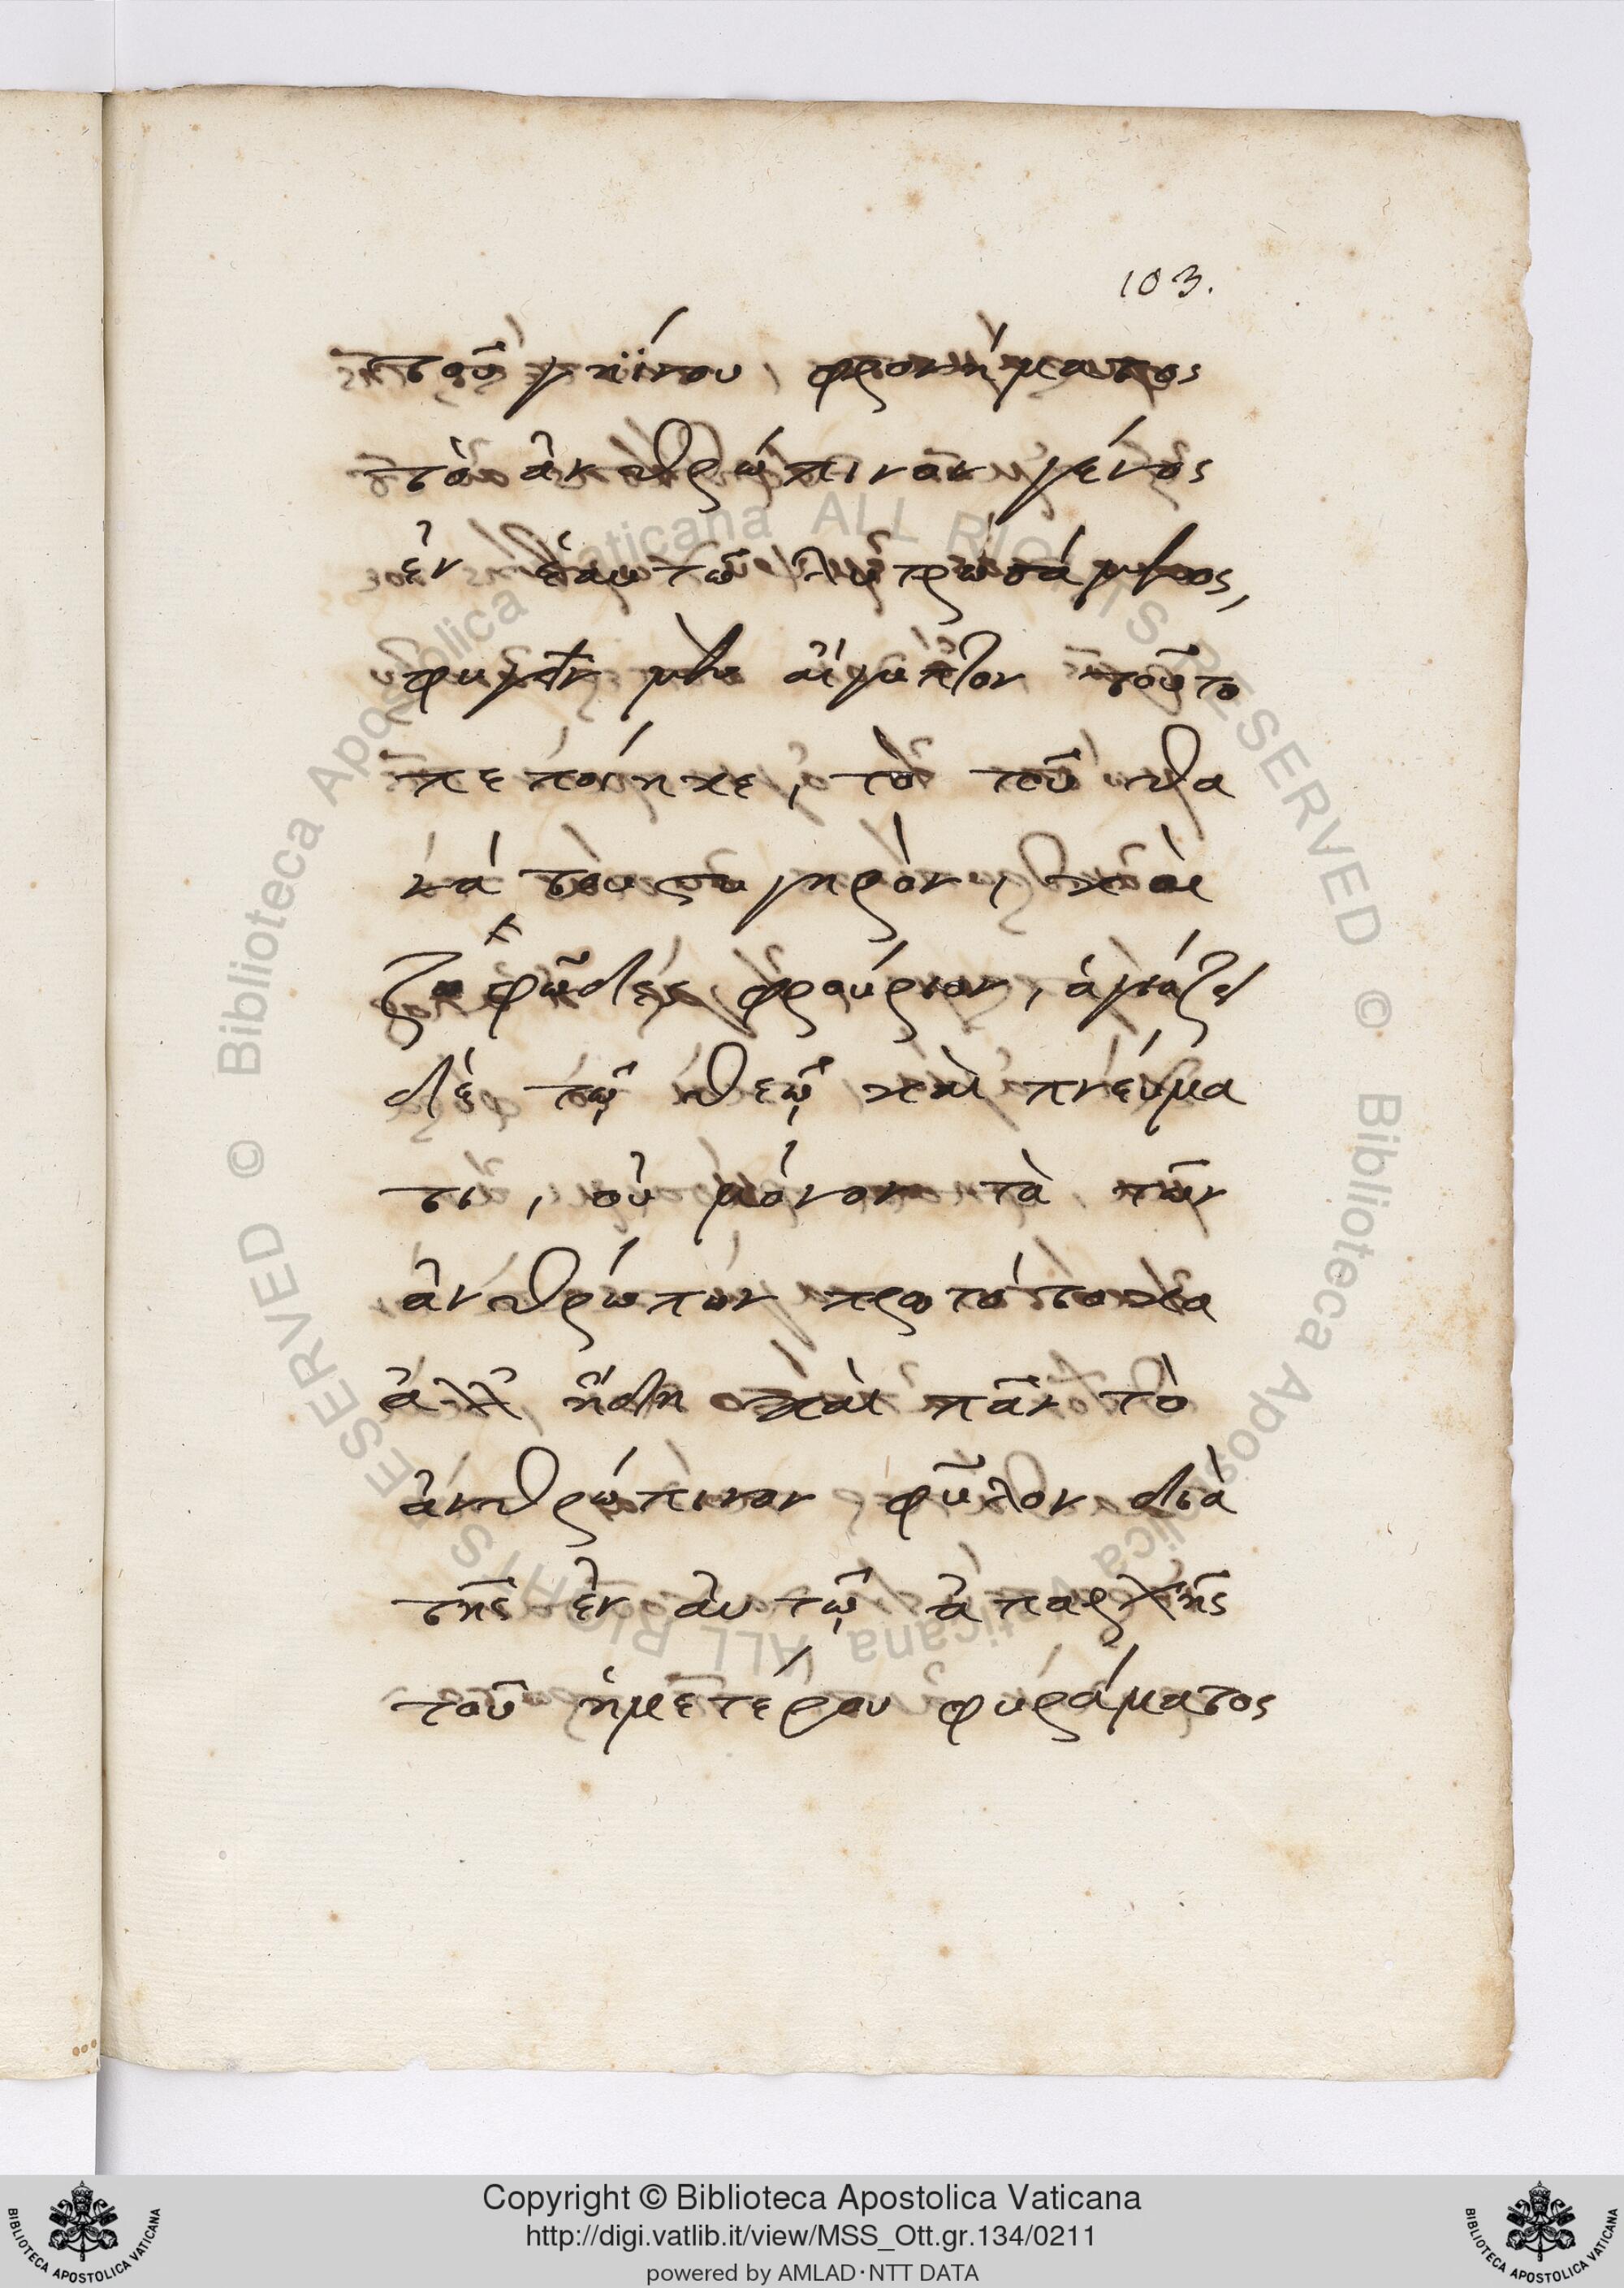 103.
τοῦ γηΐνου φρονήματος
τὸ ἀνθρώπινον γένος
ἐν ἑαυτῶ λυτρωσάμενος,
φυγεῖν μὲν αἴγυπτον τοῦτο
πεποίηκε, τὸ τοῦ θα
νάτου στυγηρὸν, καὶ
ζοφῶδες φρούριον, ἁγιάζει
δὲ τῷ θεῷ καὶ πνεύμα
τι, οὐ μόνον τὰ τῶν
ἀνθρώπων προτότοκα
ἀλλ' ἤδη καὶ πᾶν τὸ
ἀνθρώπινον φῦλον διὰ
τῆς ἐν αὐτῷ ἀπαρχῆς
τοῦ ἡμετέρου φυράματος
© Biblioteca Apostolica Vaticana ALL RIGHTS RESERVED
© Biblioteca Apostolica Vaticana ALL RIGHTS RESERVED
Copyright © Biblioteca Apostolica Vaticana
http://digi.vatlib.it/view/MSS_Ott.gr.134/0211
powered by AMLAD·NTT DATA
BIBLIOTECA APOSTOLICA VATICANA
BIBLIOTECA APOSTOLICA VATICANA